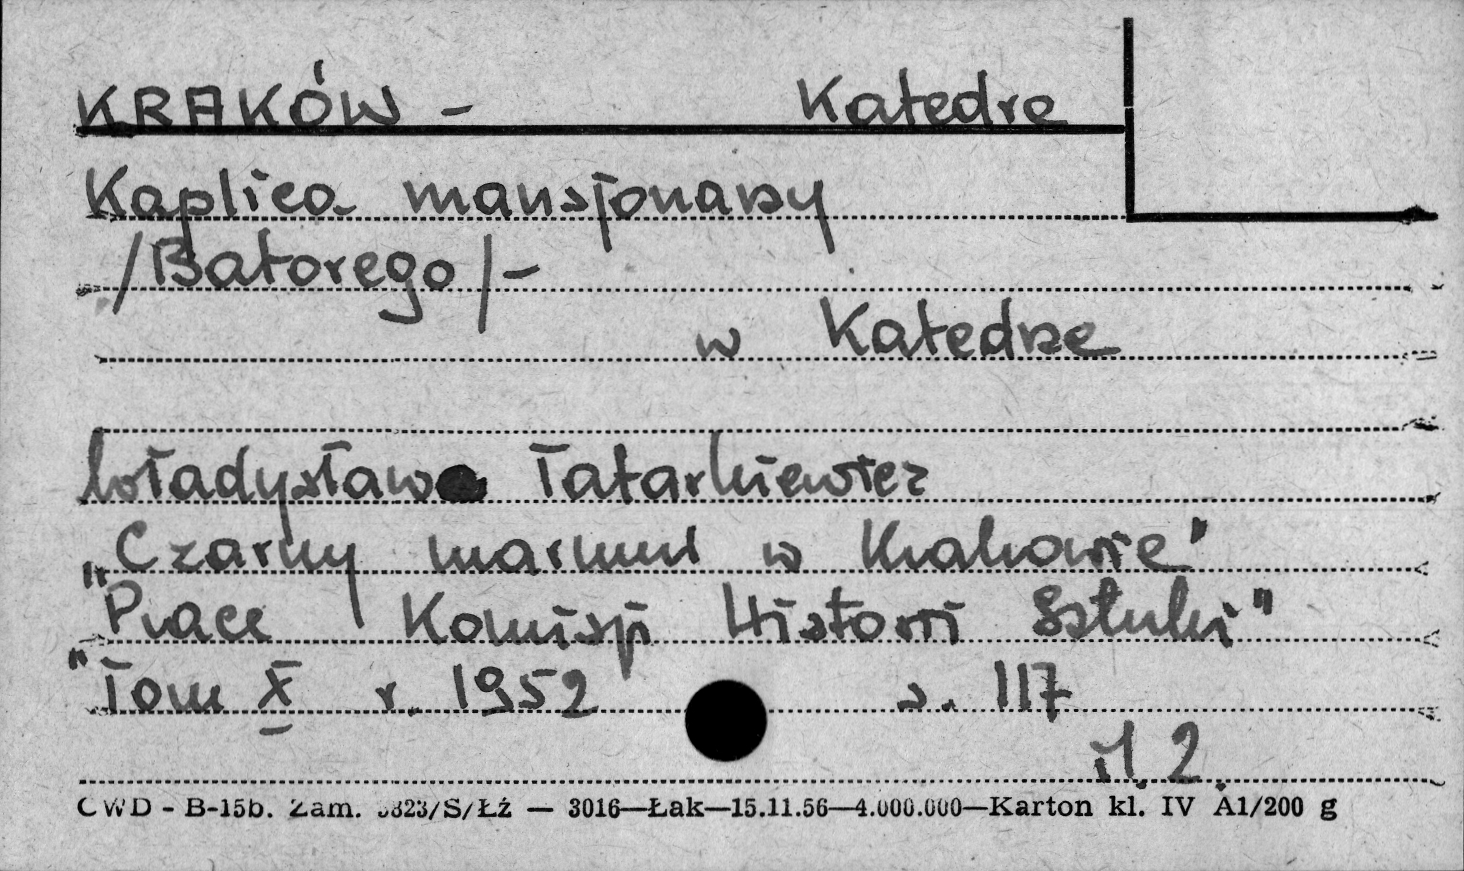 KRAKÓW - Katedra
Kaplica mansjonarzy
/Batorego/-
w Katedrze
Władysław Tatarkiewicz
„Czarny marmur w Krakowie"
"Prace Komisji Historii Sztuki"
Tom X r. 1952 s. 117
il. 2.
CWD - B-15b. Zam. 3823/S/Łź — 3016—Łak—15.11.56—4.000.000—Karton kl. IV A1/200 g